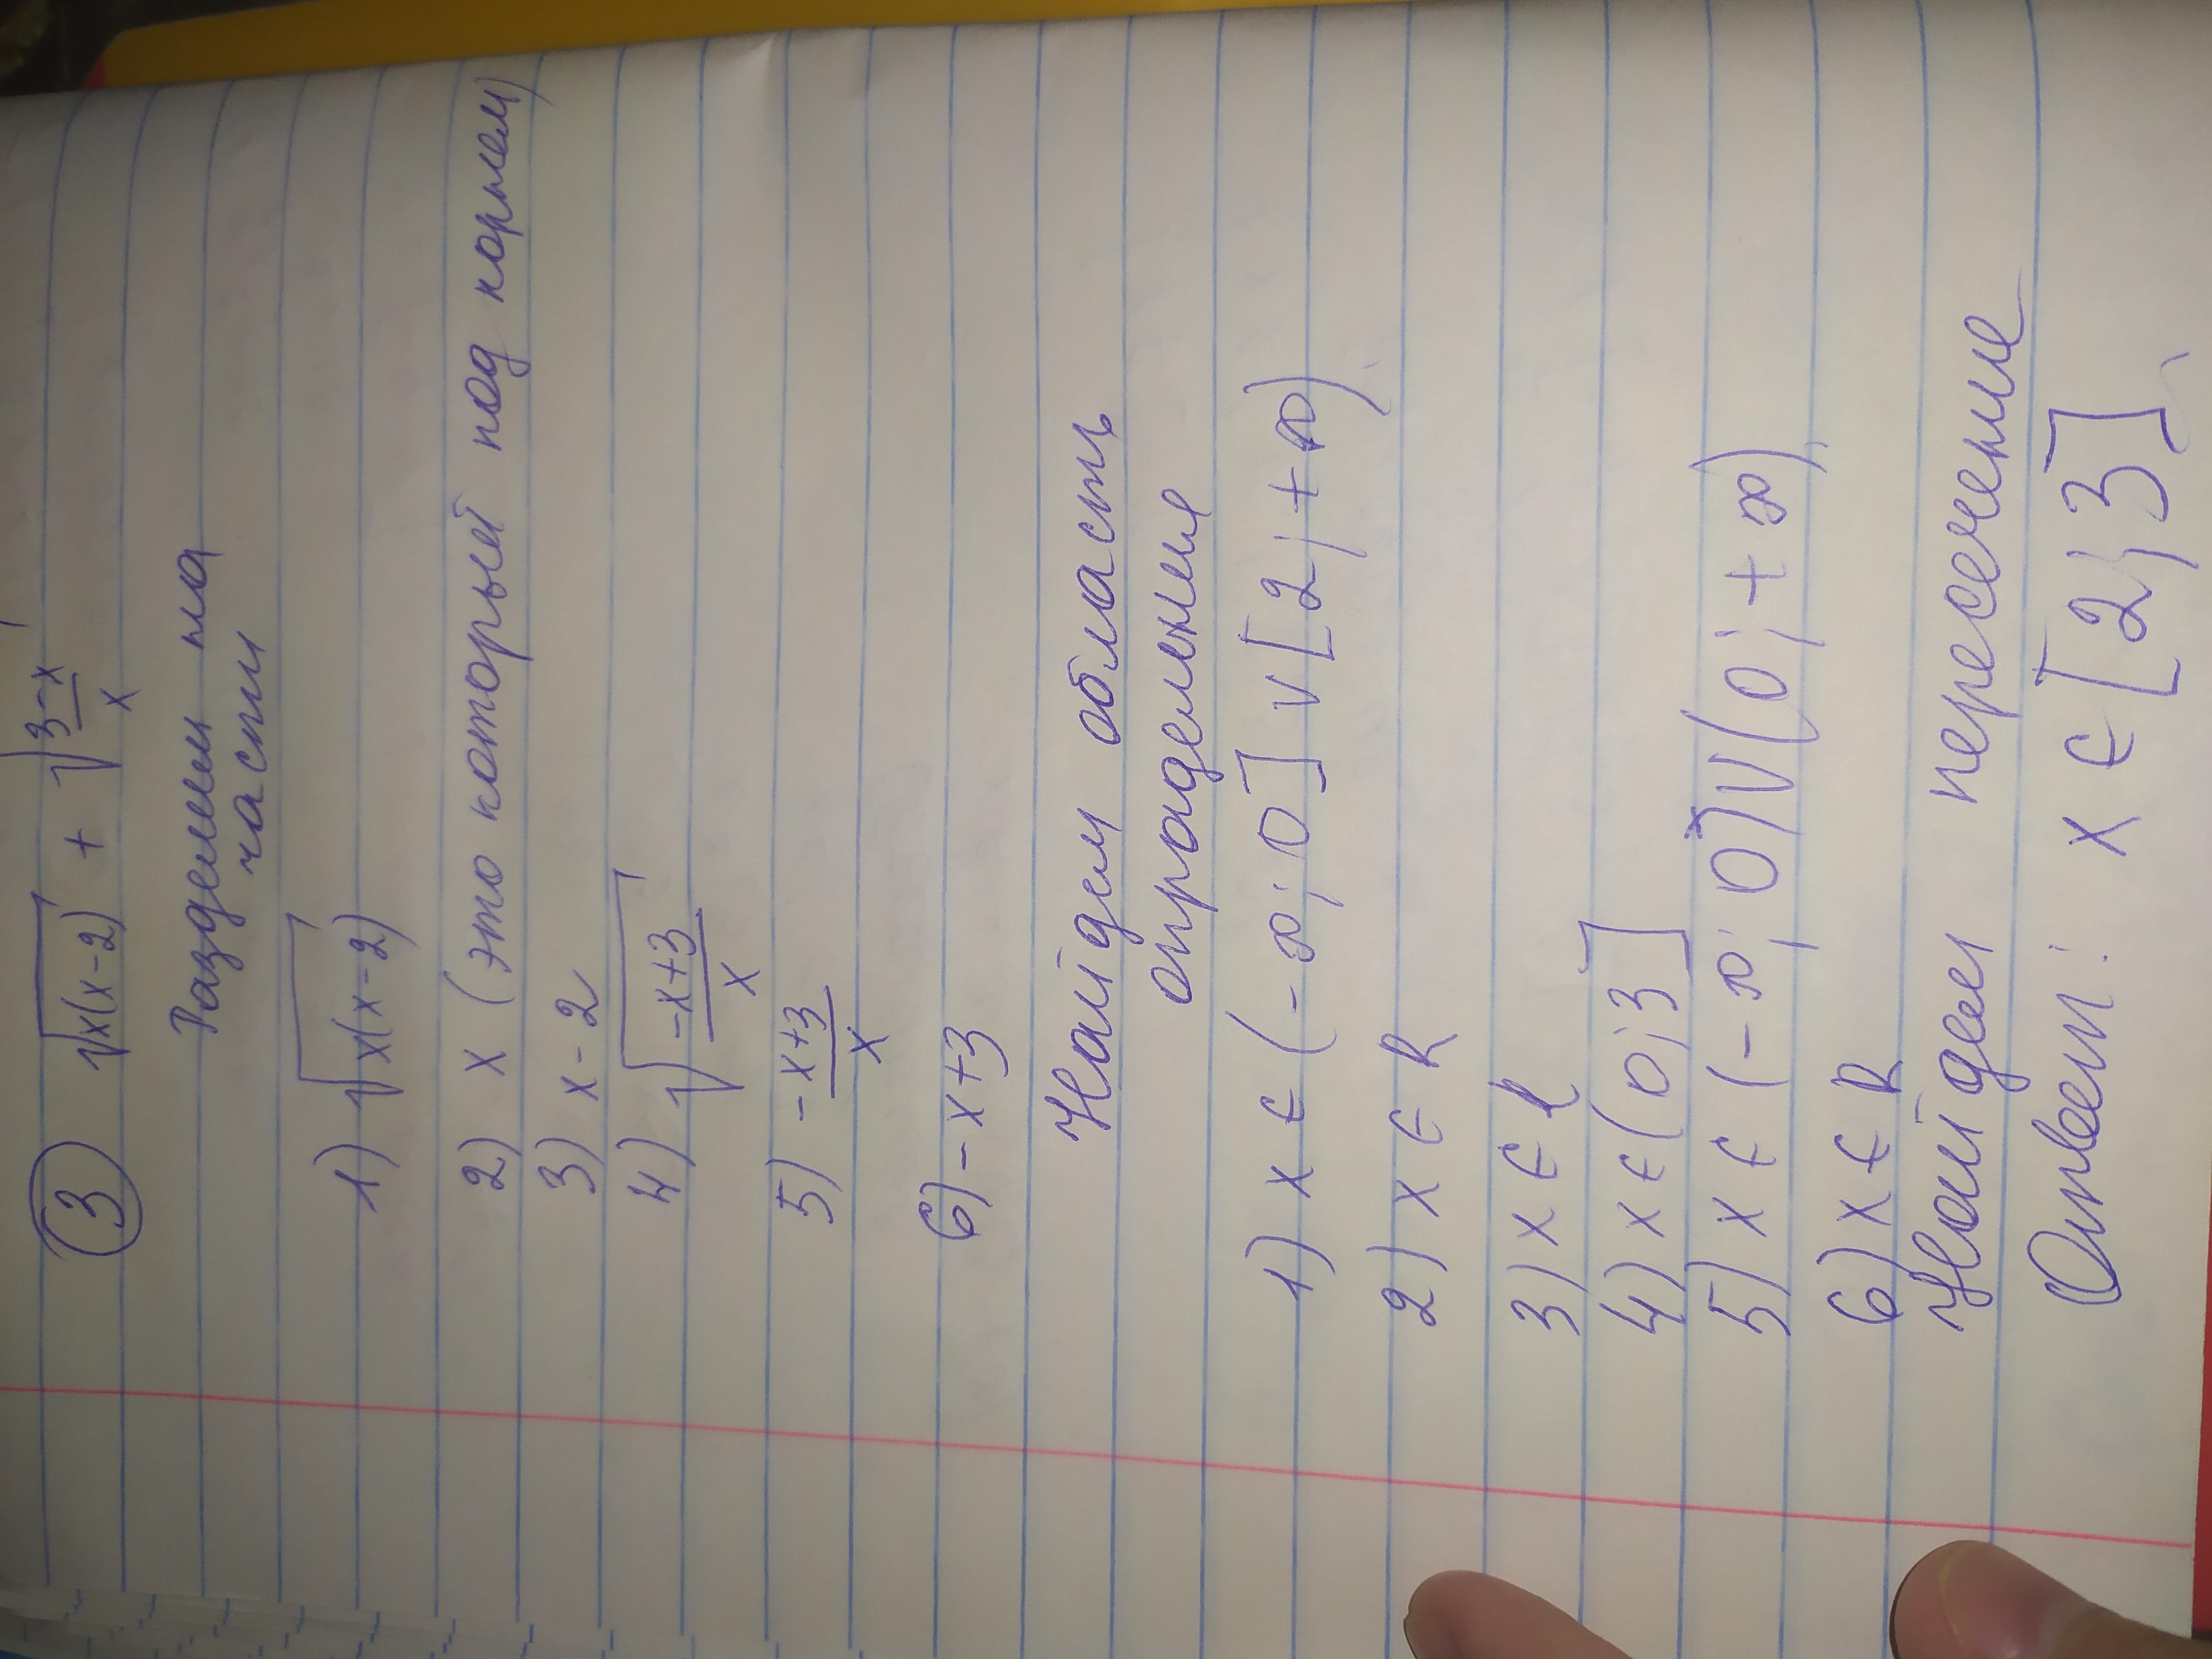 ③ √x(x-2) + √(3-x)/x
Разделим на
части
1) √x(x-2)
2) x (это который под корнем)
3) x-2
4) √(-x+3)/x
5) (-x+3)/x
6) -x+3
Найдем область
определения
1) x ∈ (-∞; 0] ∨ [2; +∞)
2) x ∈ R
3) x ∈ R
4) x ∈ (0; 3]
5) x ∈ (-∞; 0) ∨ (0; +∞)
6) x ∈ R
Найдем пересечение
Ответ: x ∈ [2; 3]